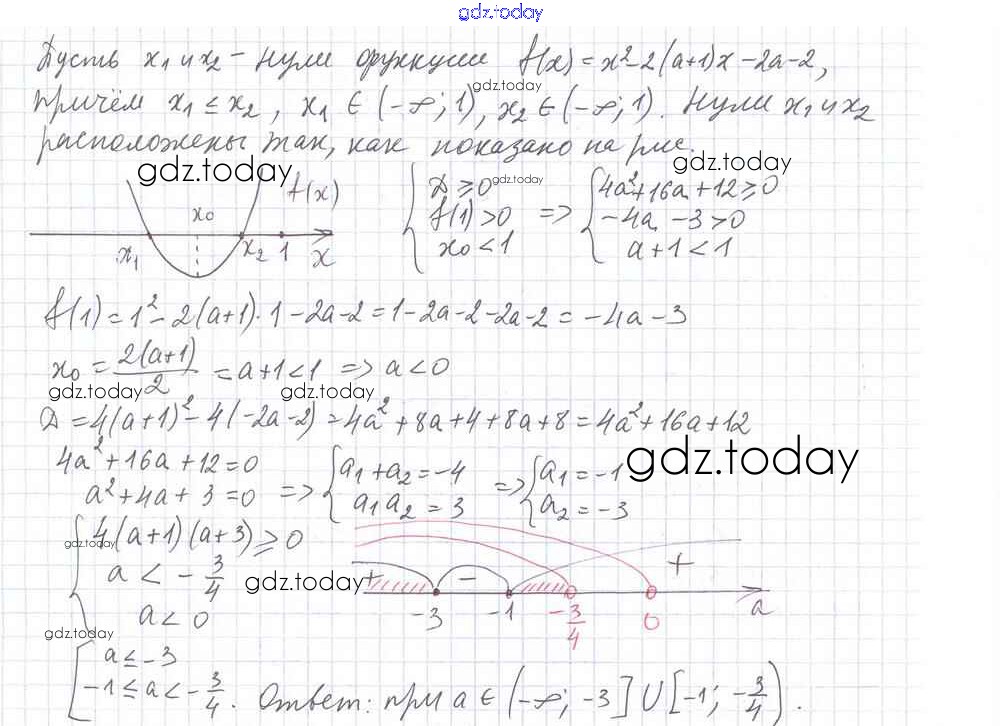 gdz.today
Пусть x₁ и x₂ – нули функции f(x) = x² – 2(a+1)x – 2a – 2,
gdz.today
причём x₁ ≤ x₂, x₁ ∈ (-∞; 1), x₂ ∈ (-∞; 1). Нули x₁ и x₂
расположены так, как показано на рис.
gdz.today
gdz.today
f(x)
x₀
x₁
x₂ 1 x
{ D ≥ 0
f(1) > 0
x₀ < 1
=> { 4a² + 16a + 12 ≥ 0
-4a - 3 > 0
a + 1 < 1
f(1) = 1² - 2(a+1)·1 - 2a - 2 = 1 - 2a - 2 - 2a - 2 = -4a - 3
x₀ = 2(a+1)/2 = a + 1 < 1 => a < 0
gdz.today
gdz.today
D = 4(a+1)² - 4(-2a-2) = 4a² + 8a + 4 + 8a + 8 = 4a² + 16a + 12
4a² + 16a + 12 = 0
a² + 4a + 3 = 0 => { a₁ + a₂ = -4
a₁a₂ = 3
=> { a₁ = -1
a₂ = -3
gdz.today
{ 4(a+1)(a+3) ≥ 0
gdz.today
a < -3/4
a < 0
gdz.today
+ - +
-3 -1 -3/4 0 a
gdz.today
[ a ≤ -3
-1 ≤ a < -3/4. Ответ: при a ∈ (-∞; -3] ∪ [-1; -3/4).